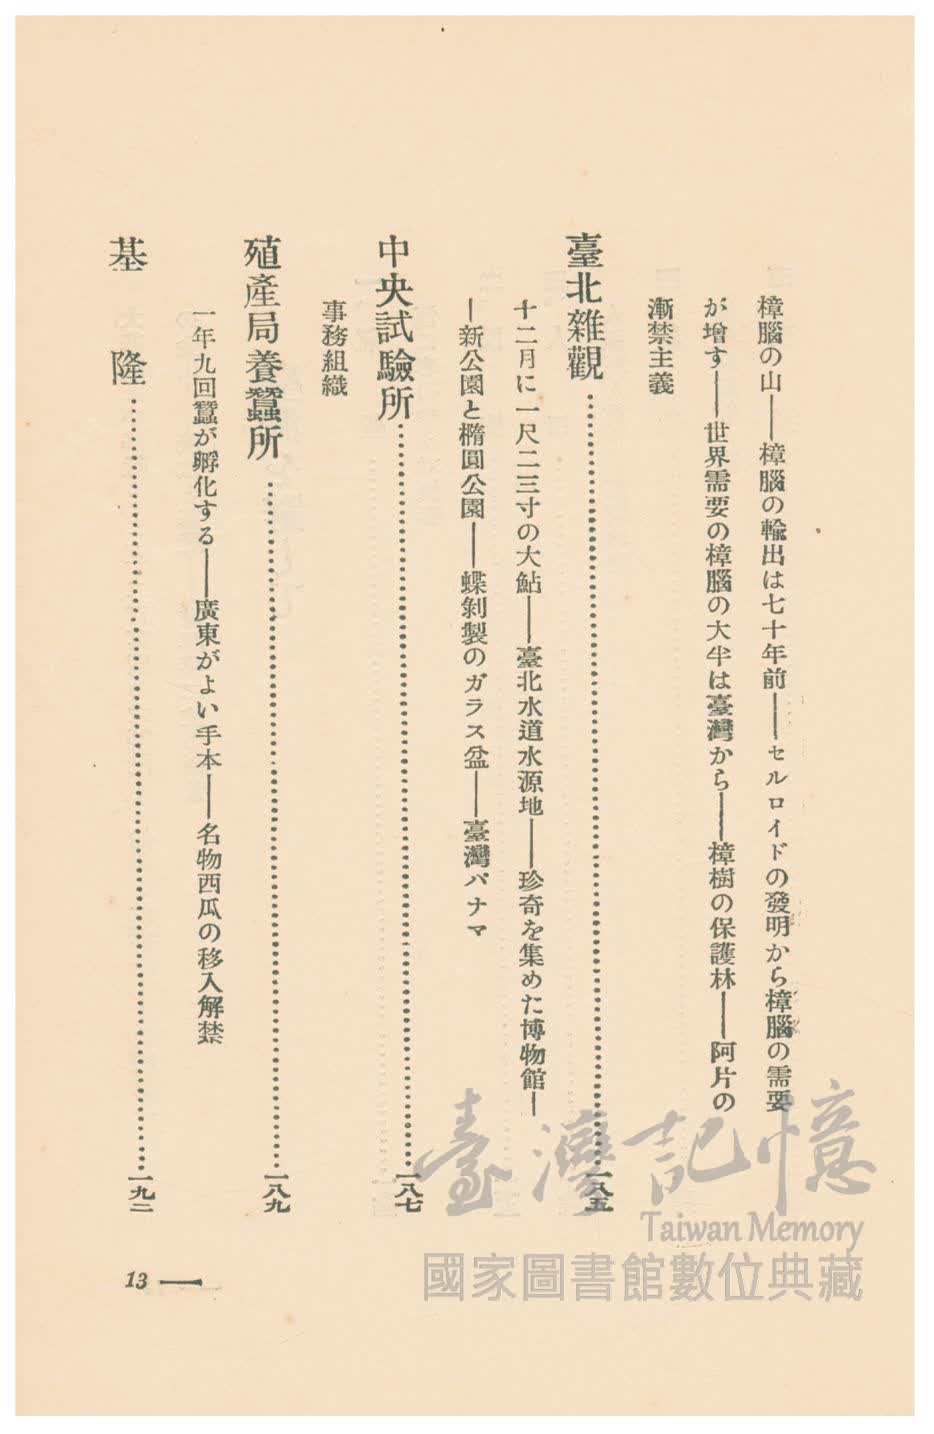 樟腦の山――樟腦の輸出は七十年前――セルロイドの發明から樟腦の需要
が增す――世界需要の樟腦の大半は臺灣から――樟樹の保護林――阿片の
漸禁主義
臺北雜觀…………………一八五
十二月に一尺二三寸の大鮎――臺北水道水源地――珍奇を集めた博物館―
―新公園と橢圓公園――蝶剝製のガラス盆――臺灣パナマ
中央試驗所…………………一八七
事務組織
殖產局養蠶所…………………一八九
一年九回蠶が孵化する――廣東がよい手本――名物西瓜の移入解禁
基隆…………………一九二
13 ―
臺灣記憶
Taiwan Memory
國家圖書館數位典藏